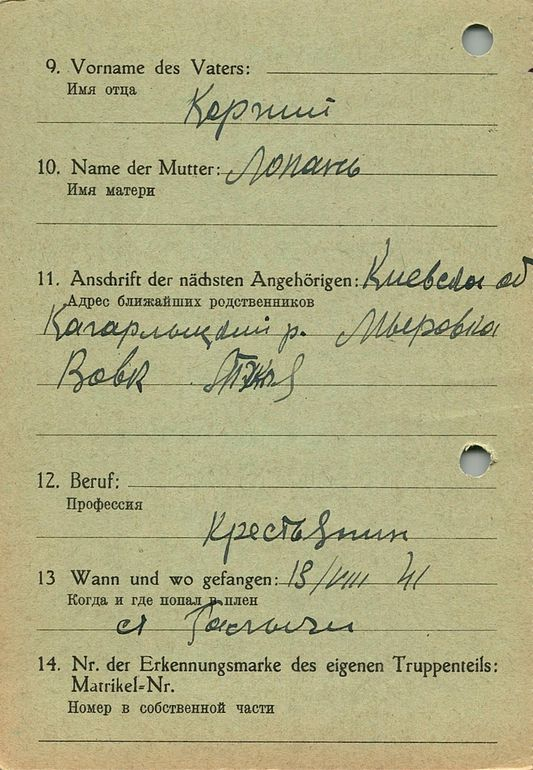 9. Vorname des Vaters:
Имя отца
Карпий
10. Name der Mutter: Лопань
Имя матери
11. Anschrift der nächsten Angehörigen: Киевская об
Адрес ближайших родственников
Кагарлыцкий р. Мъеровка
Вовк
12. Beruf:
Профессия
Крестьянин
13 Wann und wo gefangen: 18/VIII 41
Когда и где попал в плен
ст
14. Nr. der Erkennungsmarke des eigenen Truppenteils:
Matrikel-Nr.
Номер в собственной части